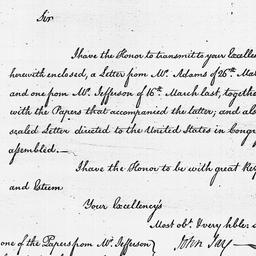 Sir
I have the Honor to transmit to your Excellen
herewith enclosed, a Letter from Mr. Adams of 26th. Mar
and one from Mr. Jefferson of 16th. March last, togethe
with the Papers that accompanied the latter; and also
sealed Letter directed to the United States in Congr
assembled.—
I have the Honor to be with great Res
and Esteem
Your Excellency's
Most obt. & very hble: s
one of the Papers from Mr. Jefferson
John Jay